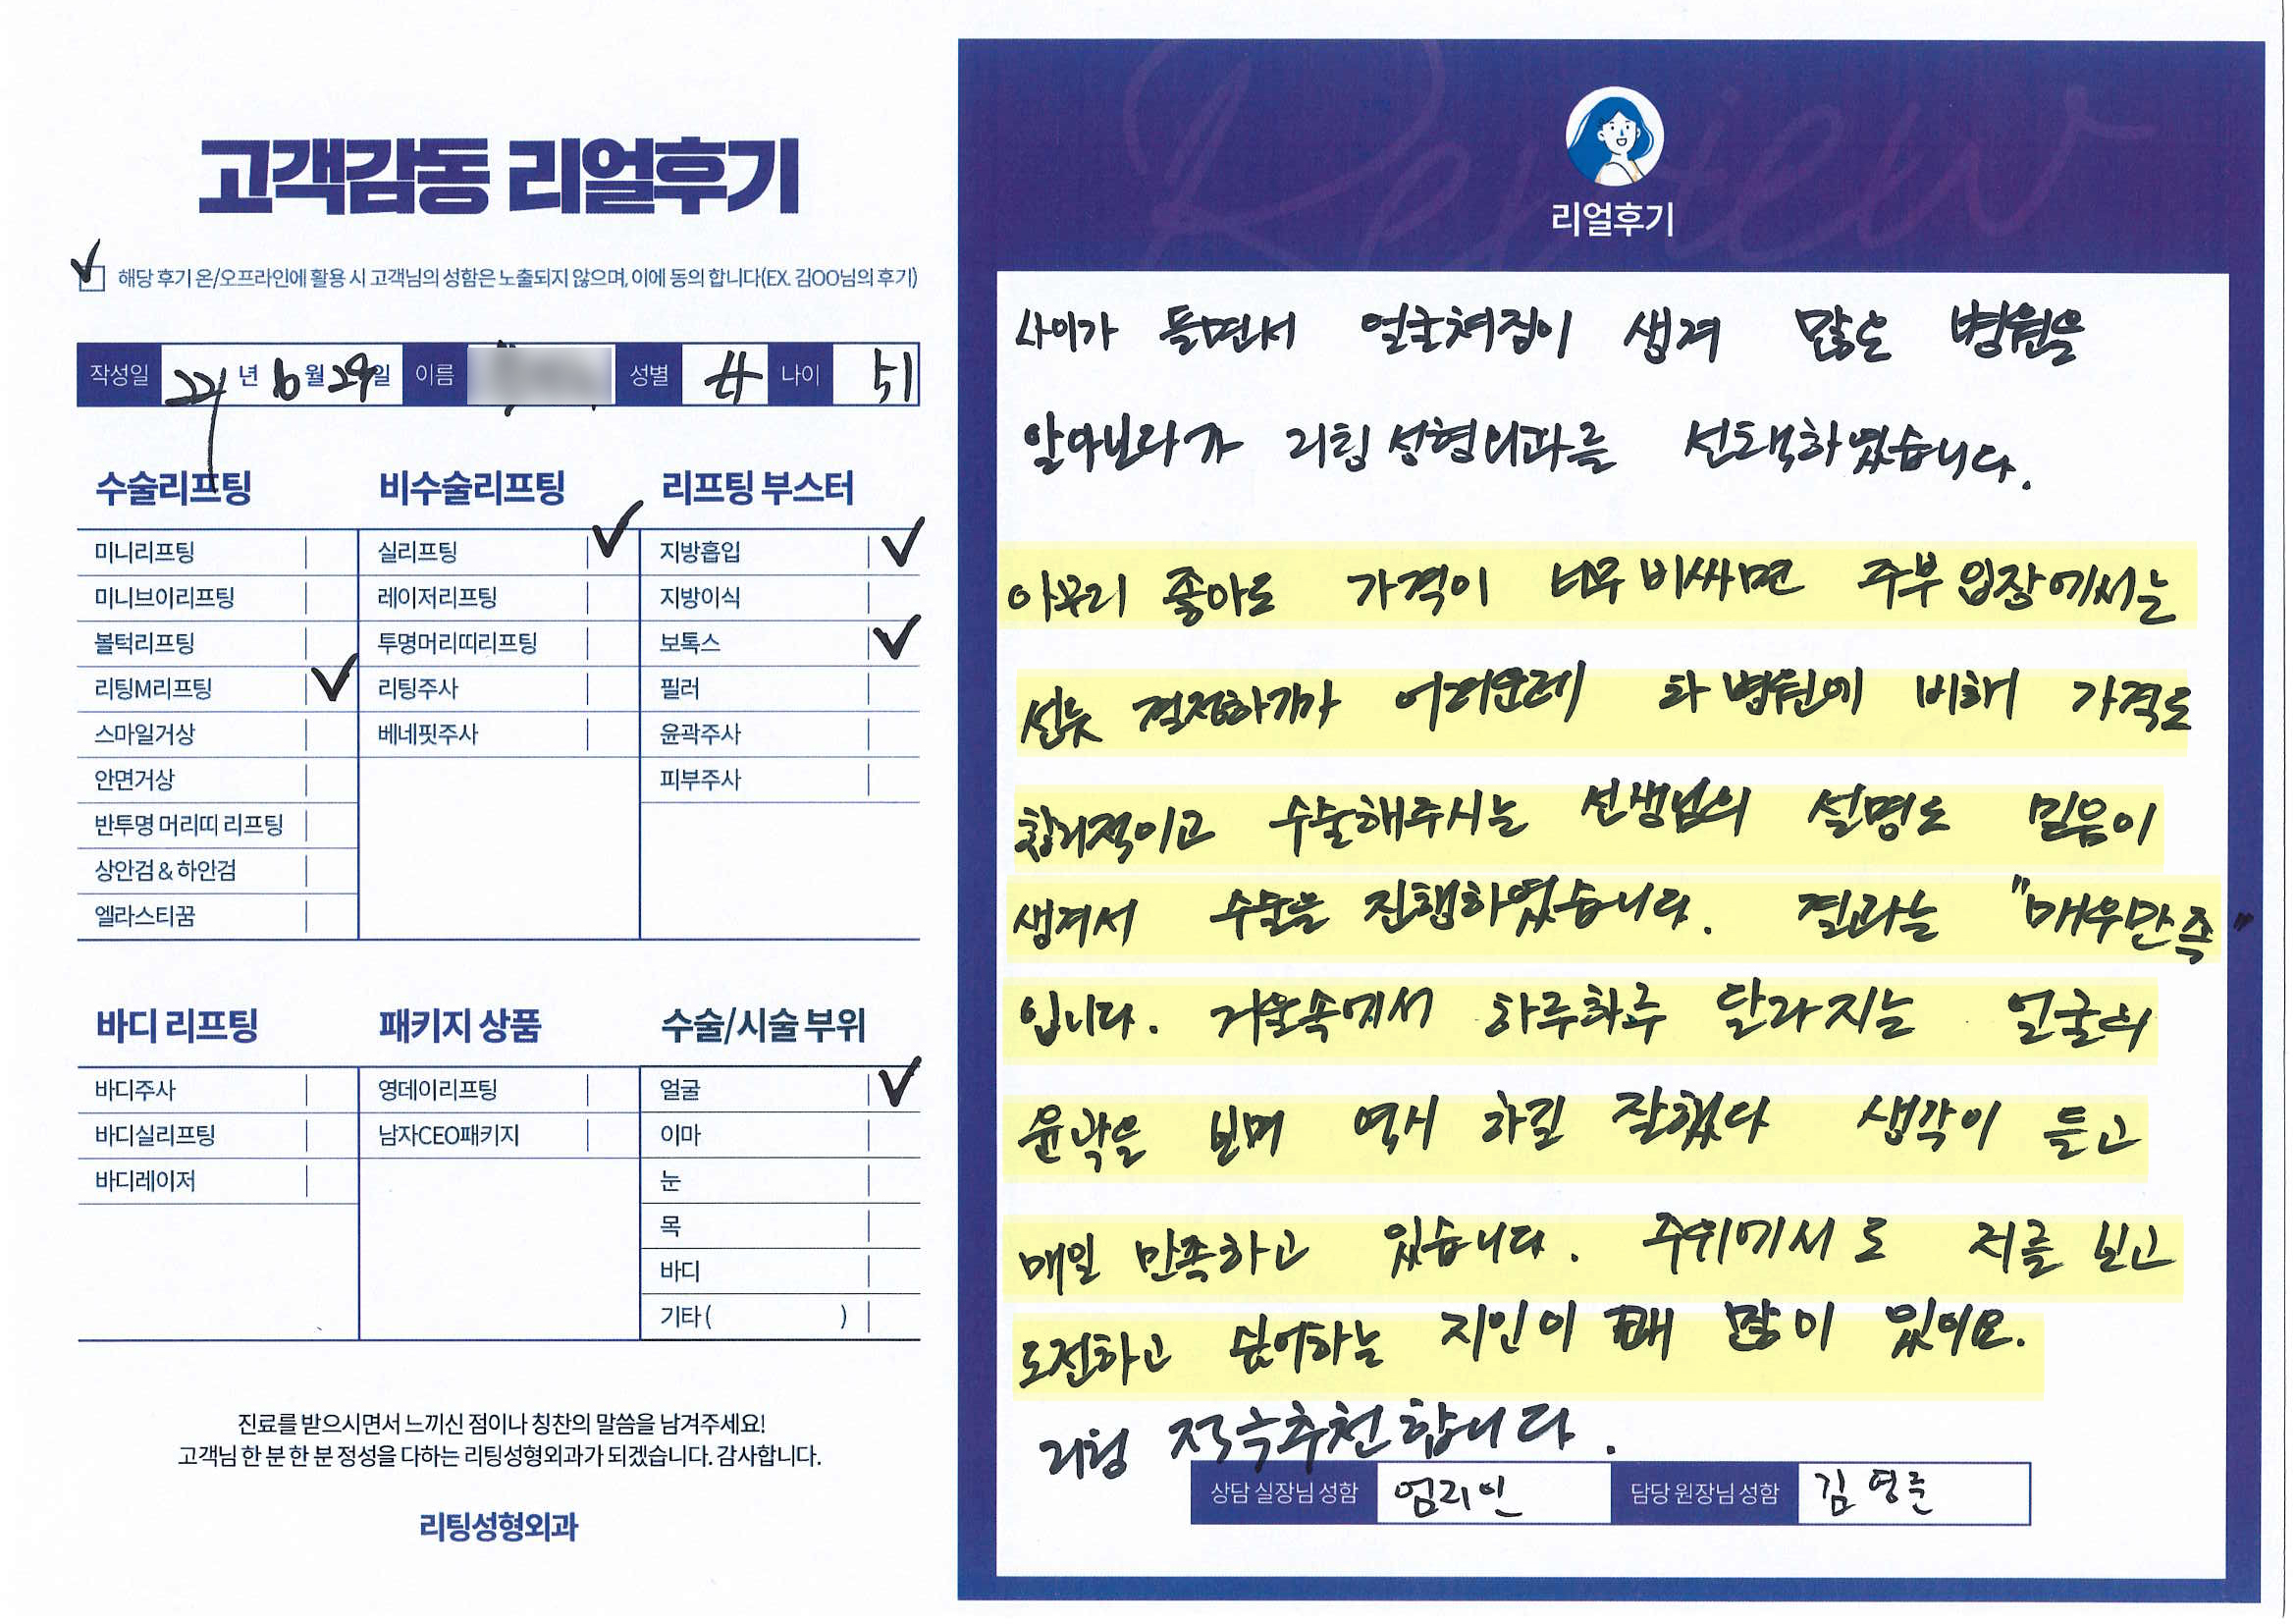 고객감동 리얼후기
해당 후기 온/오프라인에 활용 시 고객님의 성함은 노출되지 않으며, 이에 동의 합니다(EX. 김OO님의 후기)
작성일 22년 6월 29일 이름 성별 나이 51
수술리프팅
미니리프팅
미니브이리프팅
볼턱리프팅
리팅M리프팅
스마일거상
안면거상
반투명 머리띠 리프팅
상안검 & 하안검
엘라스티꿈
비수술리프팅
실리프팅
레이저리프팅
투명머리띠리프팅
리팅주사
베네핏주사
리프팅 부스터
지방흡입
지방이식
보톡스
필러
윤곽주사
피부주사
바디 리프팅
바디주사
바디실리프팅
바디레이저
패키지 상품
영데이리프팅
남자CEO패키지
수술/시술 부위
얼굴
이마
눈
목
바디
기타 ( )
진료를 받으시면서 느끼신 점이나 칭찬의 말씀을 남겨주세요!
고객님 한 분 한 분 정성을 다하는 리팅성형외과가 되겠습니다. 감사합니다.
리팅성형외과
Review
리얼후기
나이가 들면서 얼굴쳐짐이 생겨 많은 병원을
알아보다가 리팅성형외과를 선택하였습니다.
아무리 좋아도 가격이 너무 비싸면 주부 입장에서는
선뜻 결정하기가 어려운데 타 병원에 비해 가격도
합리적이고 수술해주시는 선생님의 설명도 믿음이
생겨서 수술을 진행하였습니다. 결과는 "매우만족"
입니다. 거울속에서 하루하루 달라지는 얼굴의
윤곽을 보며 역시 하길 잘했다 생각이 들고
매일 만족하고 있습니다. 주위에서도 저를 보고
도전하고 싶어하는 지인이 꽤 많이 있어요.
리팅 적극추천합니다.
상담 실장님 성함 엄리인 담당 원장님 성함 김영준